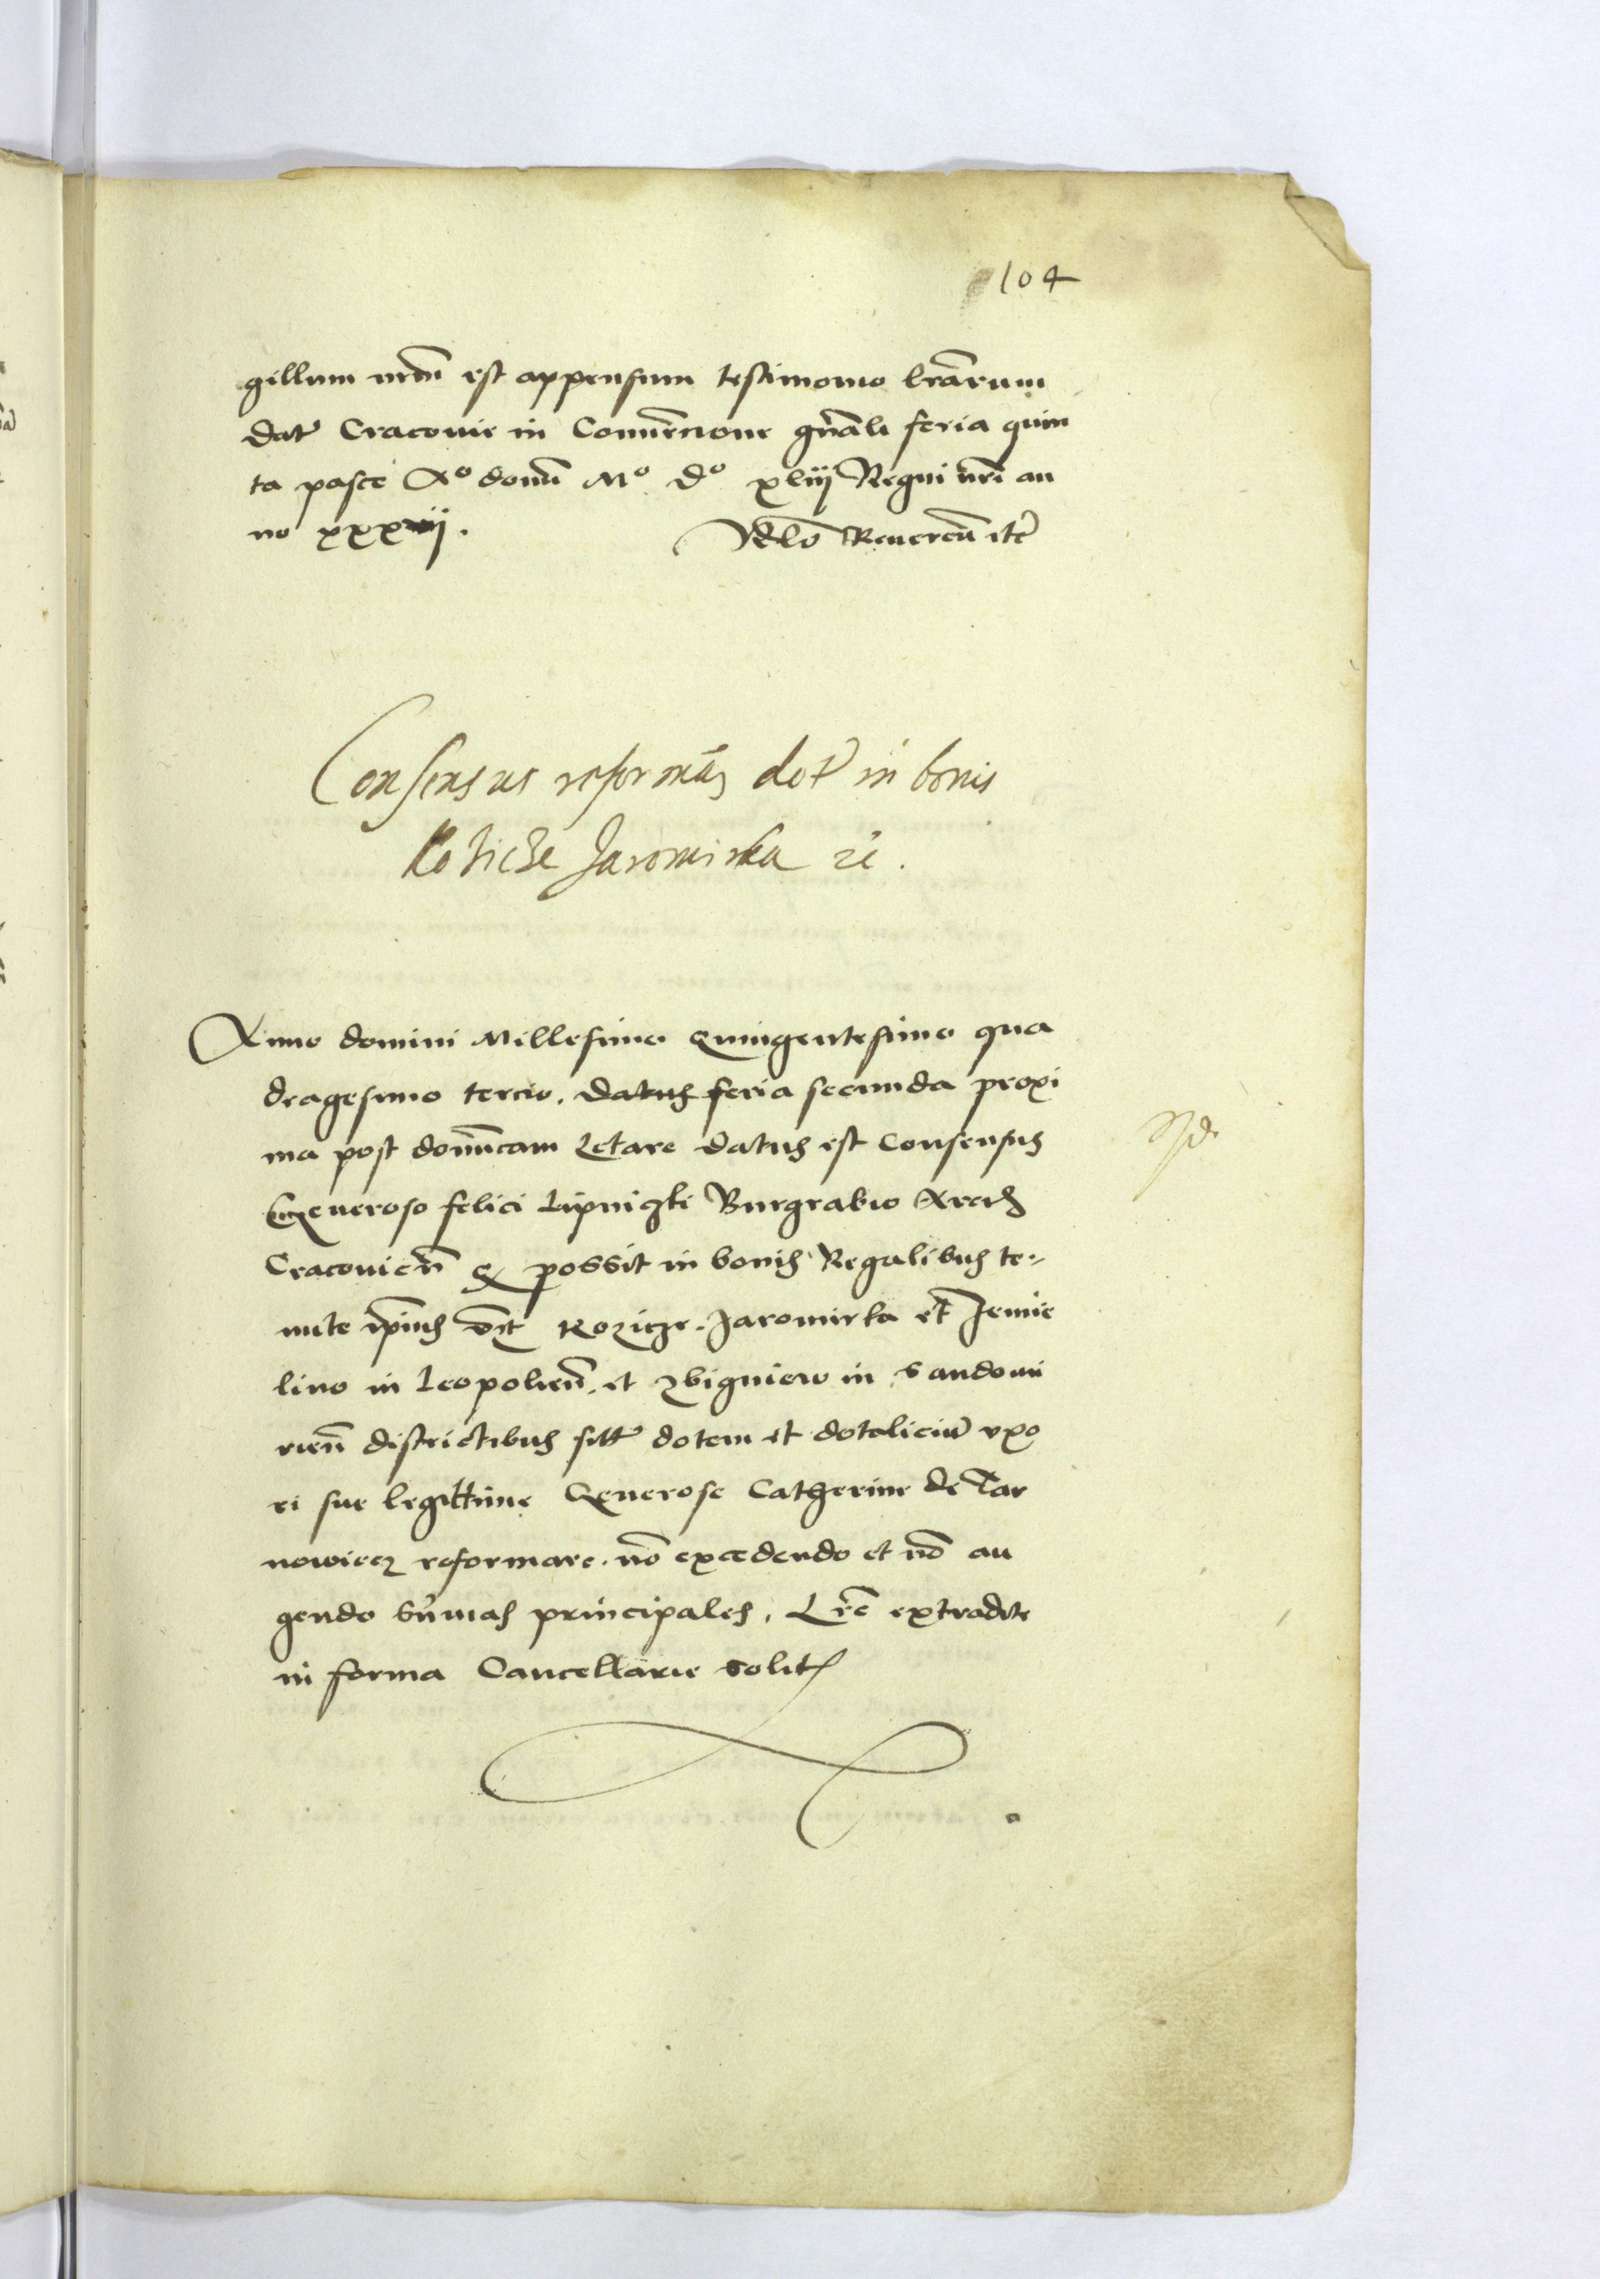 104
gillum nrm̄ est appensum testimonio lrārum
Datꝭ Cracouie in Conuētione gn̄ali feria quin
ta pasce Aº domī Mº dº xliij Regni nrī an
no xxxvij. Rlō Reuerēn etc̄
Consensus reformāȝ dotꝭ in bonis
Roticze Jaromirka ꝛc̄.
Anno domini Millesimo Quingentesimo qua
dragesimo tercio. Datus feria secunda proxi
ma post domīcam Letare datus est Consensus
Generoso felici Lipniczki Burgrabio Arcꝭ
Cracouien̄ qꝫ possit in bonis Regalibus te-
nute ip̄ius vꝫ Rozicze. Jaromirka et Jemie
lino in Leopolien̄. et Zbigniew in Sandomi
rien̄ districtibus sitꝭ dotem et dotaliciū vxo
ri sue legittime Generose Catherine de Tar
nowiecz reformare. nō excedendo et nō au
gendo sūmas principales. Lrē extradite
in forma Cancellarie solitꝭ